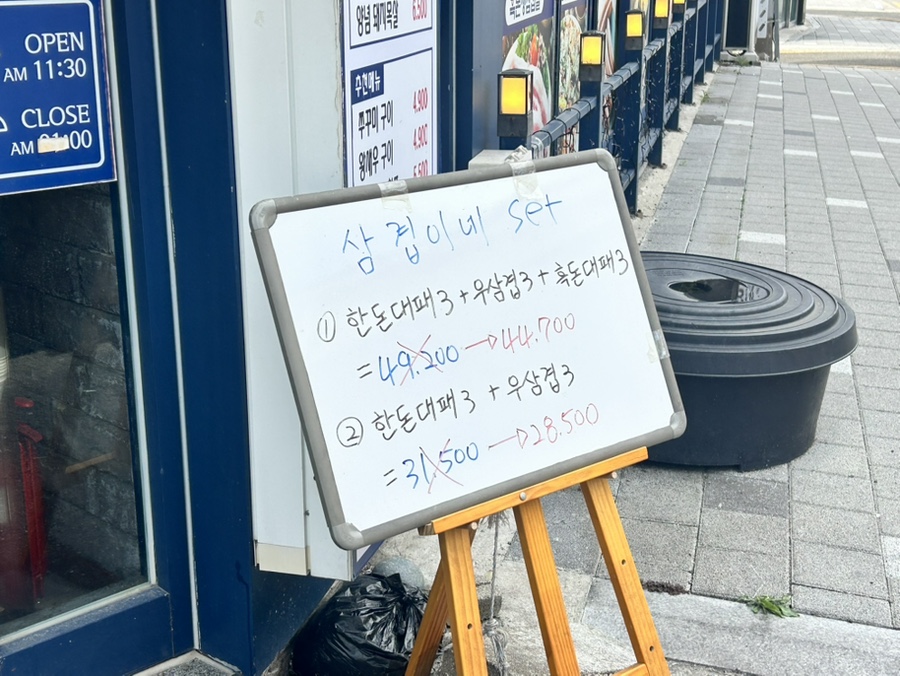 OPEN
AM 11:30
CLOSE
AM :00
양념 돼지목살 6,500
추천메뉴
쭈꾸미 구이 4,900
왕새우 구이 4,900
5,500
삼겹이네 set
① 한돈대패3 + 우삼겹3 + 흑돈대패3
= 49.200 → 44.700
② 한돈대패3 + 우삼겹3
= 31.500 → 28.500